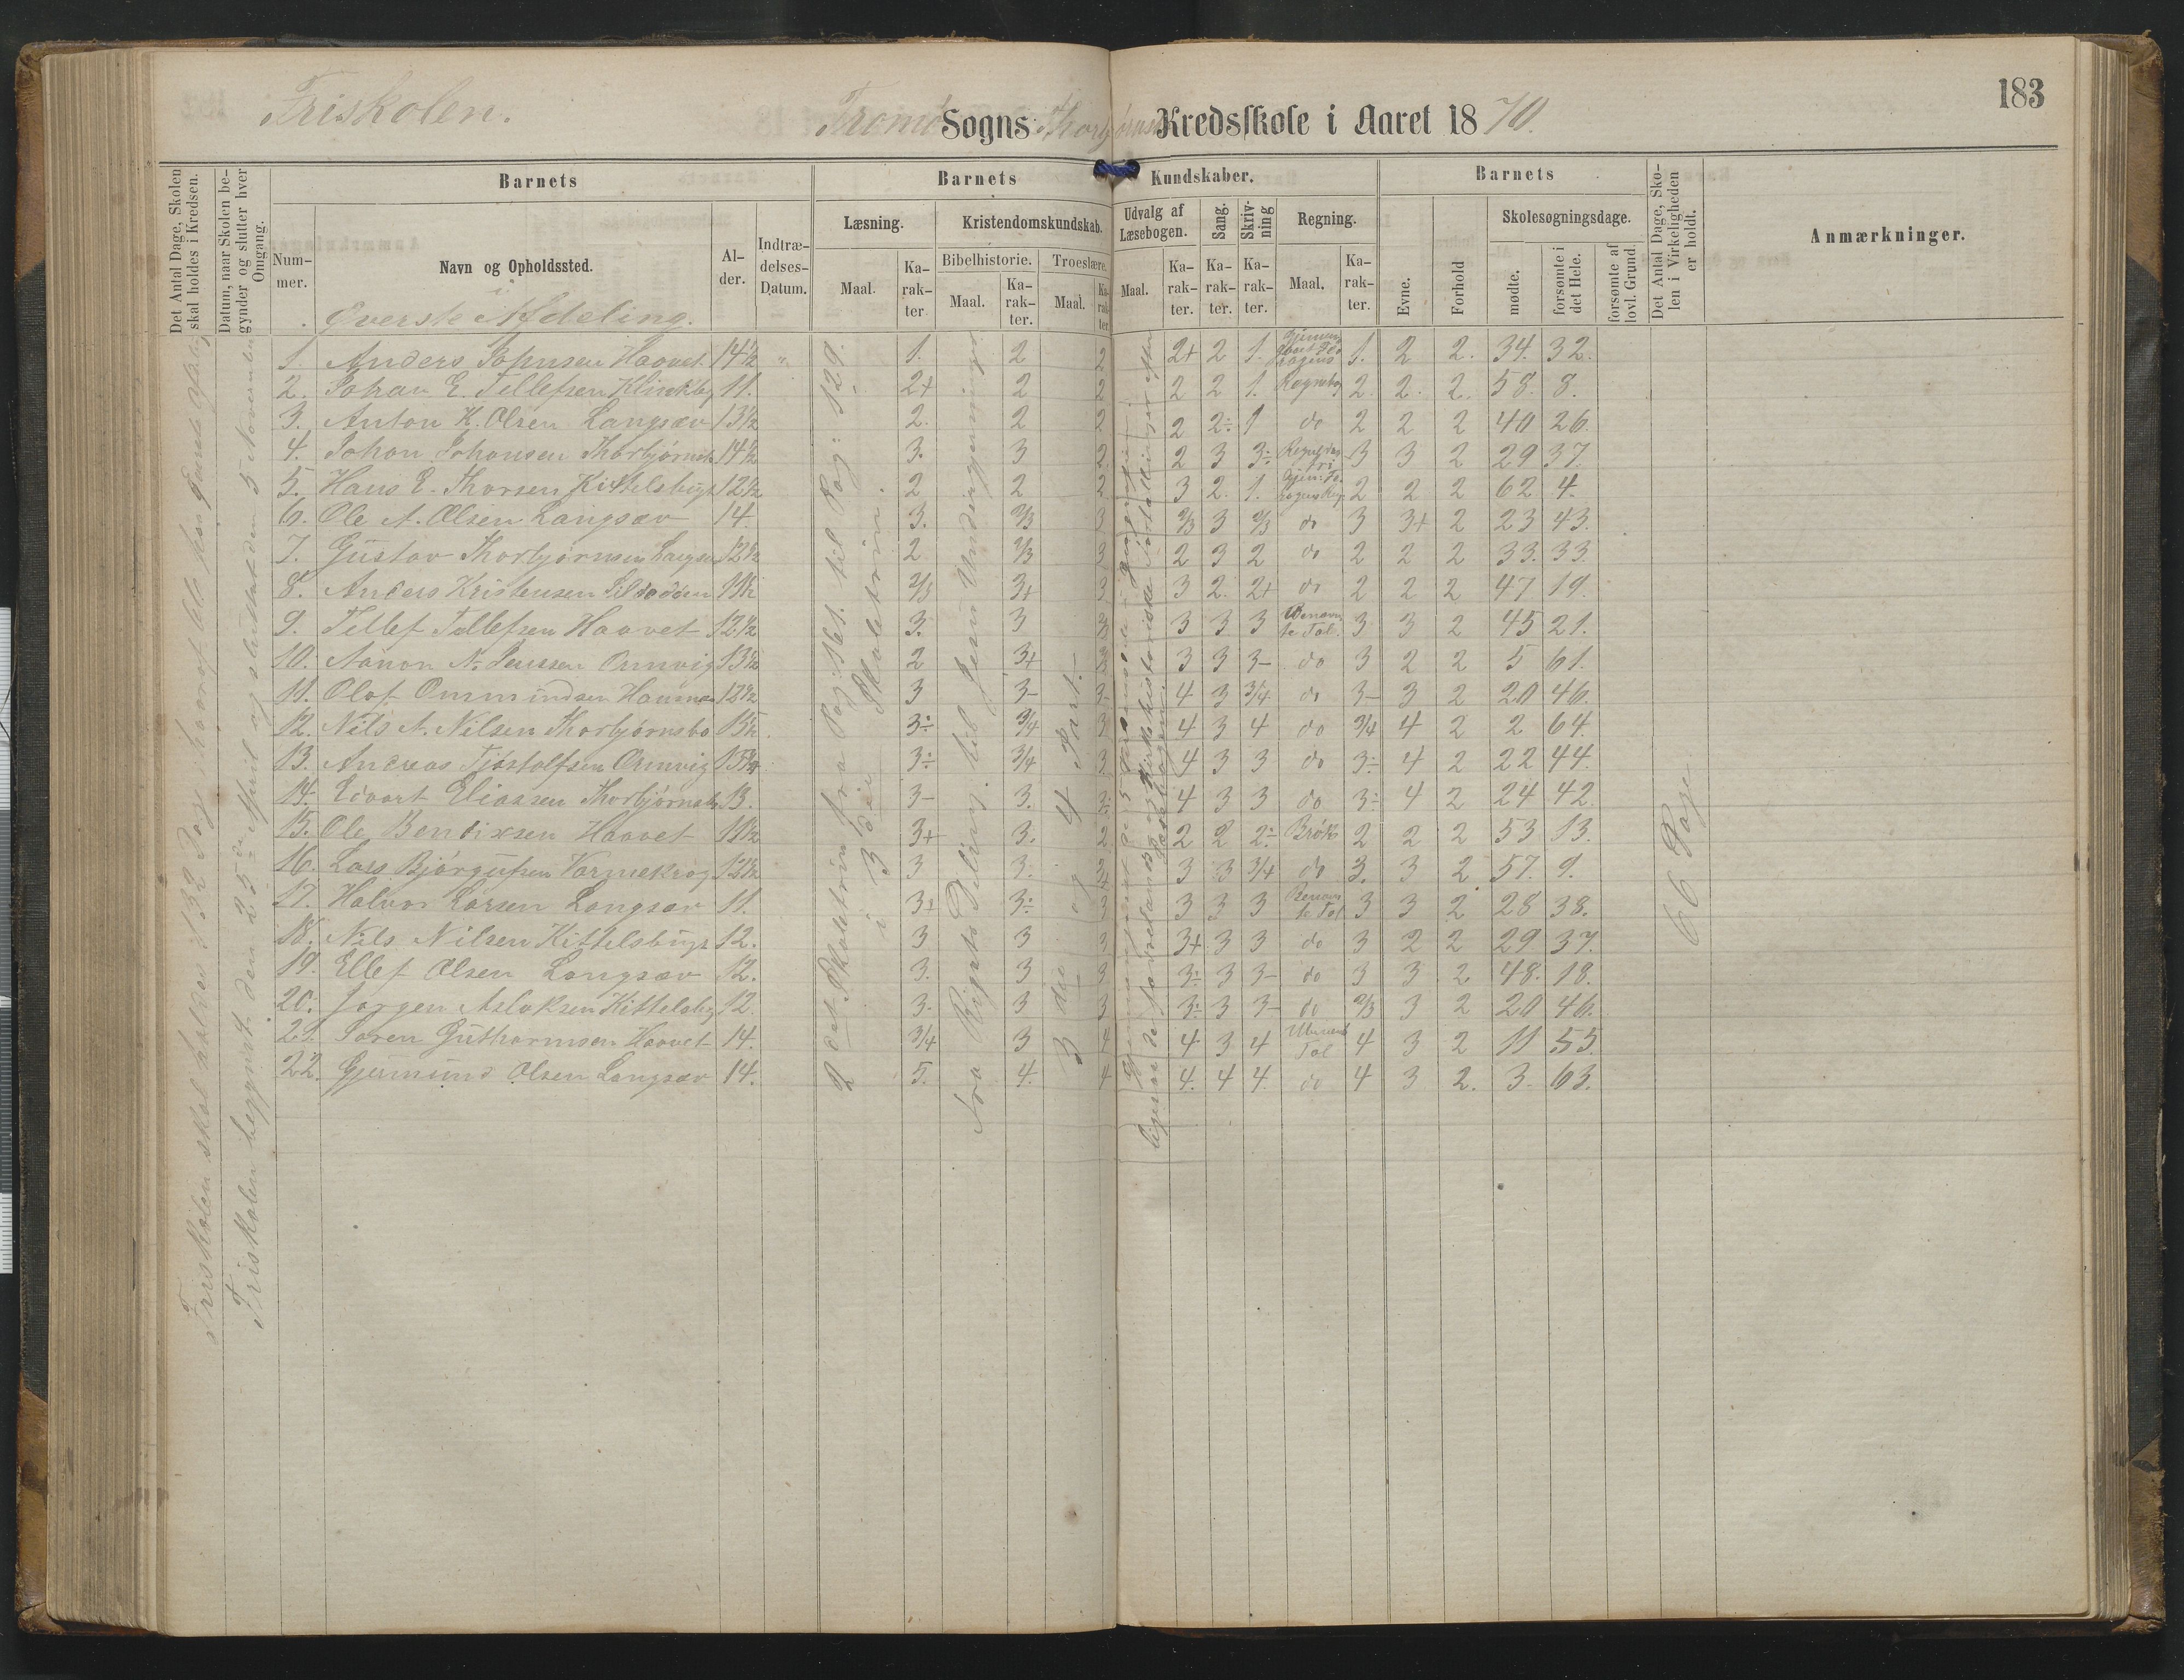 183
Friskolen.
Tromø Sogns Thorbjørnsb Kredsskole i Aaret 1870.
Det Antal Dage, Skolen skal holdes i Kredsen.
Datum, naar Skolen begynder og slutter hver Omgang.
Barnets
Barnets Kundskaber.
Barnets
Det Antal Dage, Skolen i Virkeligheden er holdt.
Anmærkninger.
Nummer.
Navn og Opholdssted.
Alder.
Indtrædelses-Datum.
Læsning.
Kristendomskundskab.
Udvalg af Læsebogen.
Sang.
Skrivning
Regning.
Evne.
Forhold
Skolesøgningsdage.
Bibelhistorie.
Troeslære.
Maal.
Karakter
Maal.
Karakter.
Maal.
Karakter
Maal.
Karakter.
Karakter.
Karakter.
Maal.
Karakter.
mødte.
forsømte i det Hele.
forsømte af lovl. Grund.
Øverste Afdeling.
1. Anders Johnsen Haavet 14½ " 1. 2 2 2+ 2 1. 1. 2 2. 34. 32.
2. Johan E. Tellefsen 11. 2+ 2 2 2 2 1. Regneb 2. 2. 2. 58. 8.
3. Anton K. Olsen Langsæv 13½ 2. 2 2 2 2÷ 1 do 2 2 2 40 26.
4. Johan Johansen Thorbjørnsb 14½ 3. 3 2 2 3 3÷ 3 3 2 29 37.
5. Hans E. Thorsen Kittelsbugt 12½ 2 2 2 3 2. 1. 2 2 2 62 4.
6. Ole A. Olsen Langsæv 14. 3. 2/3 3 2/3 3 2/3 do 3 3+ 2 23 43.
7. Gustav Thorbjørnsen Langsæ 12½ 2 2/3 3 2 3 2 do 2 2 2 33. 33.
8. Anders Kristensen 11½ 2/3 3+ 3 3 2. 2+ do 2 2 2 47. 19.
9. Tellef Tellefsen Haavet 12½ 3. 3 3 3 3 Benævnte Tal. 3 3 2 45 21.
10. Aanon N. Jenssen Omvig 13½ 2 3+ 3 3 3- do 3 2 2 5 61.
11. Olaf Ommundsen 12½ 3 3- 3- 4 3 3/4 do 3- 3 2 20 46.
12. Nils A. Nilsen Thorbjørnsbo 13½ 3÷ 3/4 3 4 3 4 do 3/4 4 2 2 64.
13. Andreas Tjøstolfsen Omvig 3÷ 3/4 3 4 3 3 do 3÷ 4 2 22 44.
14. Edvart Eliassen Thorbjørnsb 13. 3- 3. 3÷ 4 3 3 do 3÷ 4 2 24 42.
15. Ole Bendixsen Haavet 11½ 3+ 3. 2 2 2 2÷ Brøk 2 2 2 53 13.
16. Lars Bjørgufsen Varmekrog 12½ 3 3. 3 3 3/4 do 3. 3 2 57. 9.
17. Halvor Larsen Langsæv 11. 3+ 3÷ 3 3 3 3 Benævnte Tal 3 3 2 28 38.
18. Nils Nilsen Kittelsbugt 12. 3 3 3 3+ 3 3 do 3 2 2 29 37.
19. Ellef Olsen Langsæv 12. 3. 3 3 3÷ 3 3- do 3 3 2 48. 18.
20. Jørgen Aslaksen Kittelsbg 12. 3. 3 3 3÷ 3 3- do 2/3 3 2 20 46.
21. Søren Guthormsen Haavet 14. 3/4 3 4 4 3 4 Ubenævnte Tal 4 3 2 11 55.
22. Gjermund Olsen Langsæv 14. 5. 4. 4 4. 4 4. do 4 3 2. 3. 63.
Friskolen skal holdes i 132 Dage
Friskolen begyndt den 25de April og sluttet den 5 November
2det Skoletrin fra Pag: 161. til Pag: 129.
i 3die Skoletrin.
fra Rigets Deling til Jesu Undergjerninger.
3die og 4 Part.
66 Dage